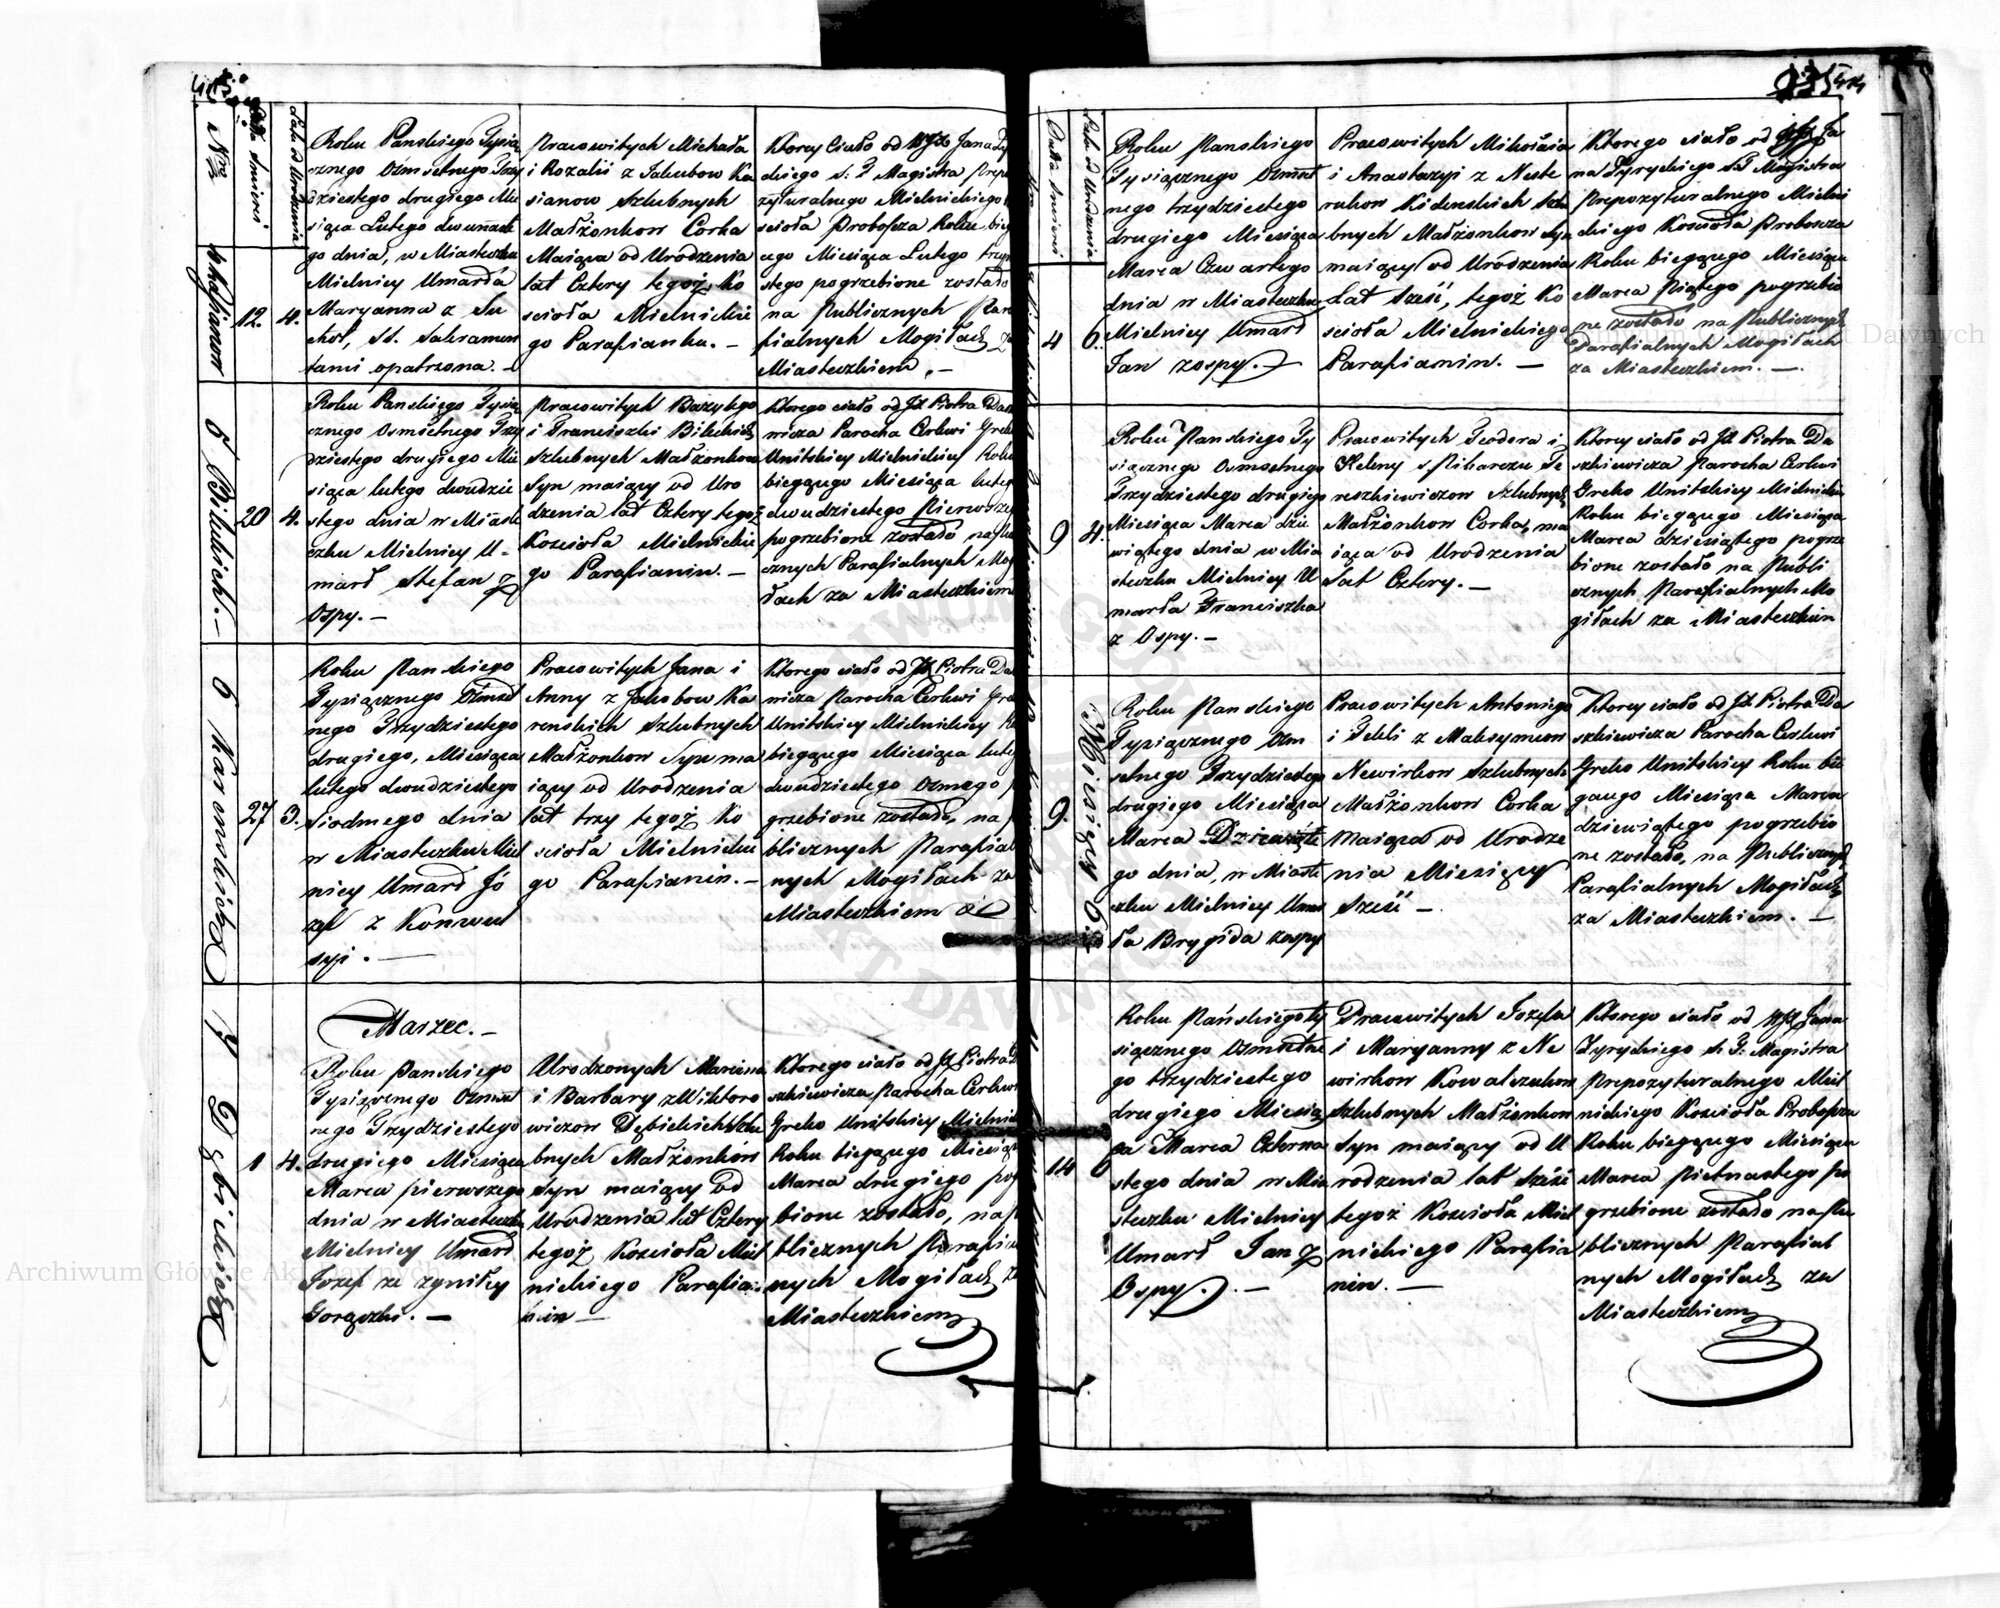 Nro
Data śmierci
Lata od Urodzenia
4 Kasjanow
12.
4.
Roku Panskiego Tysią
cznego Ośmsetnego Trzy
dziestego drugiego Mie
siąca Lutego dwunaste
go dnia, w Miasteczku
Mielnicy Umarła
Maryanna z Su
chot, SS. Sakramen
tami opatrzona. –
Pracowitych Michała
i Rozalii z Jakubow Ka
sianow Szlubnych
Małżonkow Corka
Maiąca od Urodzenia
lat Cztery tegoż Ko
scioła Mielnickie
go Parafianka. –
Ktorey Ciało od WJX Jana Ty
ckiego S: T Magistra Prepo
zyturalnego Mielnickiego
scioła Proboszcza Roku bież
cego Miesiąca Lutego trzyn
stego pogrzebione zostało
na Publicznych Para
fialnych Mogiłach za
Miasteczkiem. –
5 Bilukich. –
20
4.
Roku Panskiego Tysią
cznego Osmsetnego Trzy
dziestego drugiego Mie
siąca lutego dwudzie
stego dnia w Miaste
czku Mielnicy U-
marł Stefan z
Ospy. –
Pracowitych Bazylego
i Franciszki Bilukich
Szlubnych Małżonkow
Syn maiący od Uro
dzenia lat Cztery tegoż
Kościoła Mielnickie
go Parafianin. –
Ktorego ciało od JX Piotra Dasz
nicza Parocha Cerkwi Greko
Unitskiey Mielnickiey Roku
biegącego Miesiąca lutego
dwudziestego Pierwszego
pogrzebione zostało na Publi
cznych Parafialnych Mog
łach za Miasteczkiem
6 Karenskich
27
3.
Roku Panskiego
Tysiącznego Ośmset
nego Trzydziestego
drugiego, Miesiąca
lutego dwudziestego
Siodmego dnia
w Miasteczku Miel
nicy Umarł Jó
zef z Konwul
syi. –
Pracowitych Jana i
Anny z Jakobow Ka
renskich Szlubnych
Małżonkow Syn ma
iący od Urodzenia
lat trzy tegoż Ko
scioła Mielnickie
go Parafianin. –
Ktorego ciało od JX Piotra Da
nicza Parocha Cerkwi Gre
Unitskiey Mielnickiey Ro
biegącego Miesiąca lute
dwudziestego Osmego p
grzebione zostało, na P
blicznych Parafial
nych Mogiłach za
Miasteczkiem
7 Dębickich
1
4.
Marzec. –
Roku Panskiego
Tysiącznego Ośmset
nego Trzydziestego
drugiego Miesiąca
Marca pierwszego
dnia w Miasteczku
Mielnicy Umarł
Jozef ze zgniłey
Gorączki. –
Urodzonych Marcina
i Barbary z Wiktoro
wiczow Dębickich Szlu
bnych Małżonkow
Syn maiący od
Urodzenia lat Cztery
tegoż Kościoła Miel
nickiego Parafia
nin –
Ktorego ciało od JX Piotra D
szkiewicza Parocha Cerkwi
Greko Unitskiey Mielnick
Roku biegącego Miesiąca
Marca drugiego pog
bione zostało, na P
blicznych Parafial
nych Mogiłach za
Miasteczkiem
Data śmierci
Lata od Urodzenia
4
6.
Roku Panskiego
Tysiącznego Ośmset
nego trzydziestego
drugiego Miesiąca
Marca Czwartego
dnia w Miasteczku
Mielnicy Umarł
Jan z ospy. –
Pracowitych Mikołaia
i Anastazyi z Neste
rukow Kidenskich Szlu
bnych Małżonkow Syn
maiący od Urodzenia
Lat Sześć, tegoż Ko
scioła Mielnickiego
Parafianin. –
Ktorego ciało od WJX Ja
na Tyryckiego S.T Magistra
Prepozyturalnego Mielni
ckiego Kościoła Proboszcza
Roku biegącego Miesiąca
Marca Piątego pogrzebio
ne zostało na Publicznych
Parafialnych Mogiłach
za Miasteczkiem. –
9
4.
Roku Panskiego Ty
siącznego Osmsetnego
Trzydziestego drugiego
Miesiąca Marca dzie
wiątego dnia w Mia
steczku Mielnicy U
marła Franciszka
z Ospy. –
Pracowitych Teodora i
Heleny z Piharczu Te
reszkiewiczow Szlubnych
Małżonkow Corka, ma
iąca od Urodzenia
Lat Cztery. –
Ktorey ciało od JX Piotra Da
szkiewicza Parocha Cerkwi
Greko Unitskiey Mielnickiey
Roku biegącego Miesiąca
Marca dziesiątego pogrze
bione zostało na Publi
cznych Parafialnych Mo
giłach za Miasteczkiem
9.
Miesięcy 6.
Roku Panskiego
Tysiącznego Osm
setnego Trzydziestego
drugiego Miesiąca
Marca Dziewiąte
go dnia, w Miaste
czku Mielnicy Umar
ła Brygida z ospy
Pracowitych Antoniego
i Tekli z Maksymcow
Newirkow Szlubnych
Małżonkow Corka
maiąca od Urodze
nia Miesięcy
Sześć –
Ktorey ciało od JX Piotra Da
szkiewicza Parocha Cerkwi
Greko Unitskiey Roku bie
gącego Miesiąca Marca
dziewiątego pogrzebio
ne zostało, na Publicznych
Parafialnych Mogiłach
za Miasteczkiem. –
14
6
Roku Pańskiego Ty
siącznego Osmsetne
go trzydziestego
drugiego Miesią
ca Marca Czterna
stego dnia w Mia
steczku Mielnicy
Umarł Jan z
Ospy. –
Pracowitych Jozefa
i Maryanny z Ne
wirkow Kowalczukow
Szlubnych Małżonkow
Syn maiący od U
rodzenia lat Sześć
tegoż Kościoła Miel
nickiego Parafia
nin. –
Ktorego ciało od WJX Jana
Tyryckiego S. T: Magistra
Prepozyturalnego Miel
nickiego Kościoła Proboszcza
Roku biegącego Miesiąca
Marca Pietnastego po
grzebione zostało na Pu
blicznych Parafial
nych Mogiłach za
Miasteczkiem
Archiwum Główne Akt Dawnych